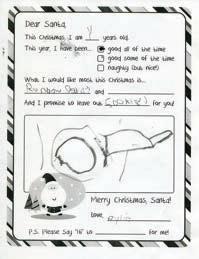 Dear Santa,
This Christmas, I am years old.
This year, I have been... good all of the time
good some of the time
naughty (but nice!)
What I would like most this Christmas is...
Rainbow and
And I promise to leave out cookies for you!
Merry Christmas, Santa!
Love,
P.S. Please Say "Hi" to for me!